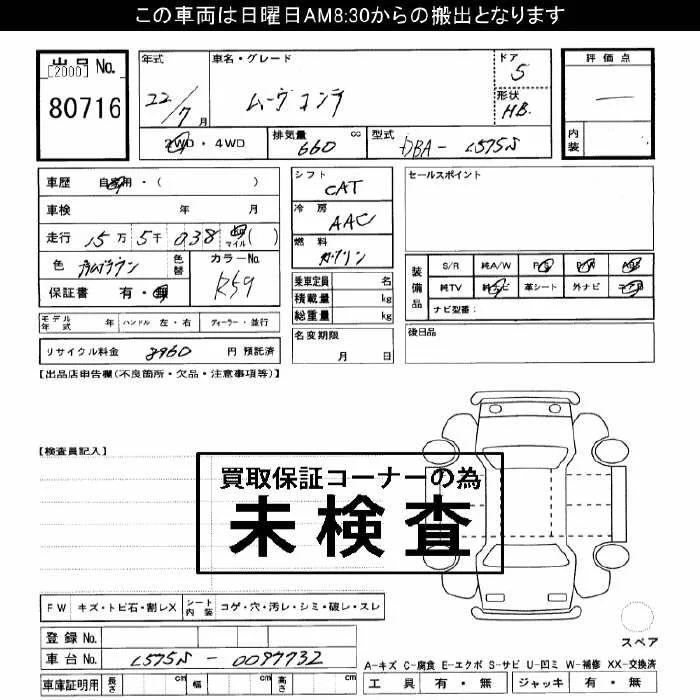 この車両は日曜日AM8:30からの搬出となります
出品 No.
[2000]
80716
年式
22/7 月
車名・グレード
ムーヴ コンテ
ドア
5
形状
HB.
評価点
—
内装
2WD・4WD
排気量 660 cc
型式 DBA- L575S
車歴 自家用・( )
車検 年 月
走行 15万 5千 038 km マイル ( )
色
色替
カラーNo.
R59
保証書 有・無
モデル年式 年 ハンドル 左・右 ディーラー・並行
リサイクル料金 8960 円 預託済
シフト
CAT
冷房
AAC
燃料
ガソリン
乗車定員 名
積載量 kg
総重量 kg
名変期限
月 日
セールスポイント
装備品
S/R 純A/W P/S P/W A/B
純TV 純ナビ 革シート 外ナビ
ナビ型番:
後日品
【出品店申告欄(不良箇所・欠品・注意事項等)】
【検査員記入】
買取保証コーナーの為
未検査
FW キズ・トビ石・割レX シート内装 コゲ・穴・汚レ・シミ・破レ・スレ
登録 No.
車台 No. L575S - 0097732
車庫証明用 長さ cm 幅 cm 高さ cm
スペア
A-キズ C-腐食 E-エクボ S-サビ U-凹ミ W-補修 XX-交換済
工具 有・無 ジャッキ 有・無